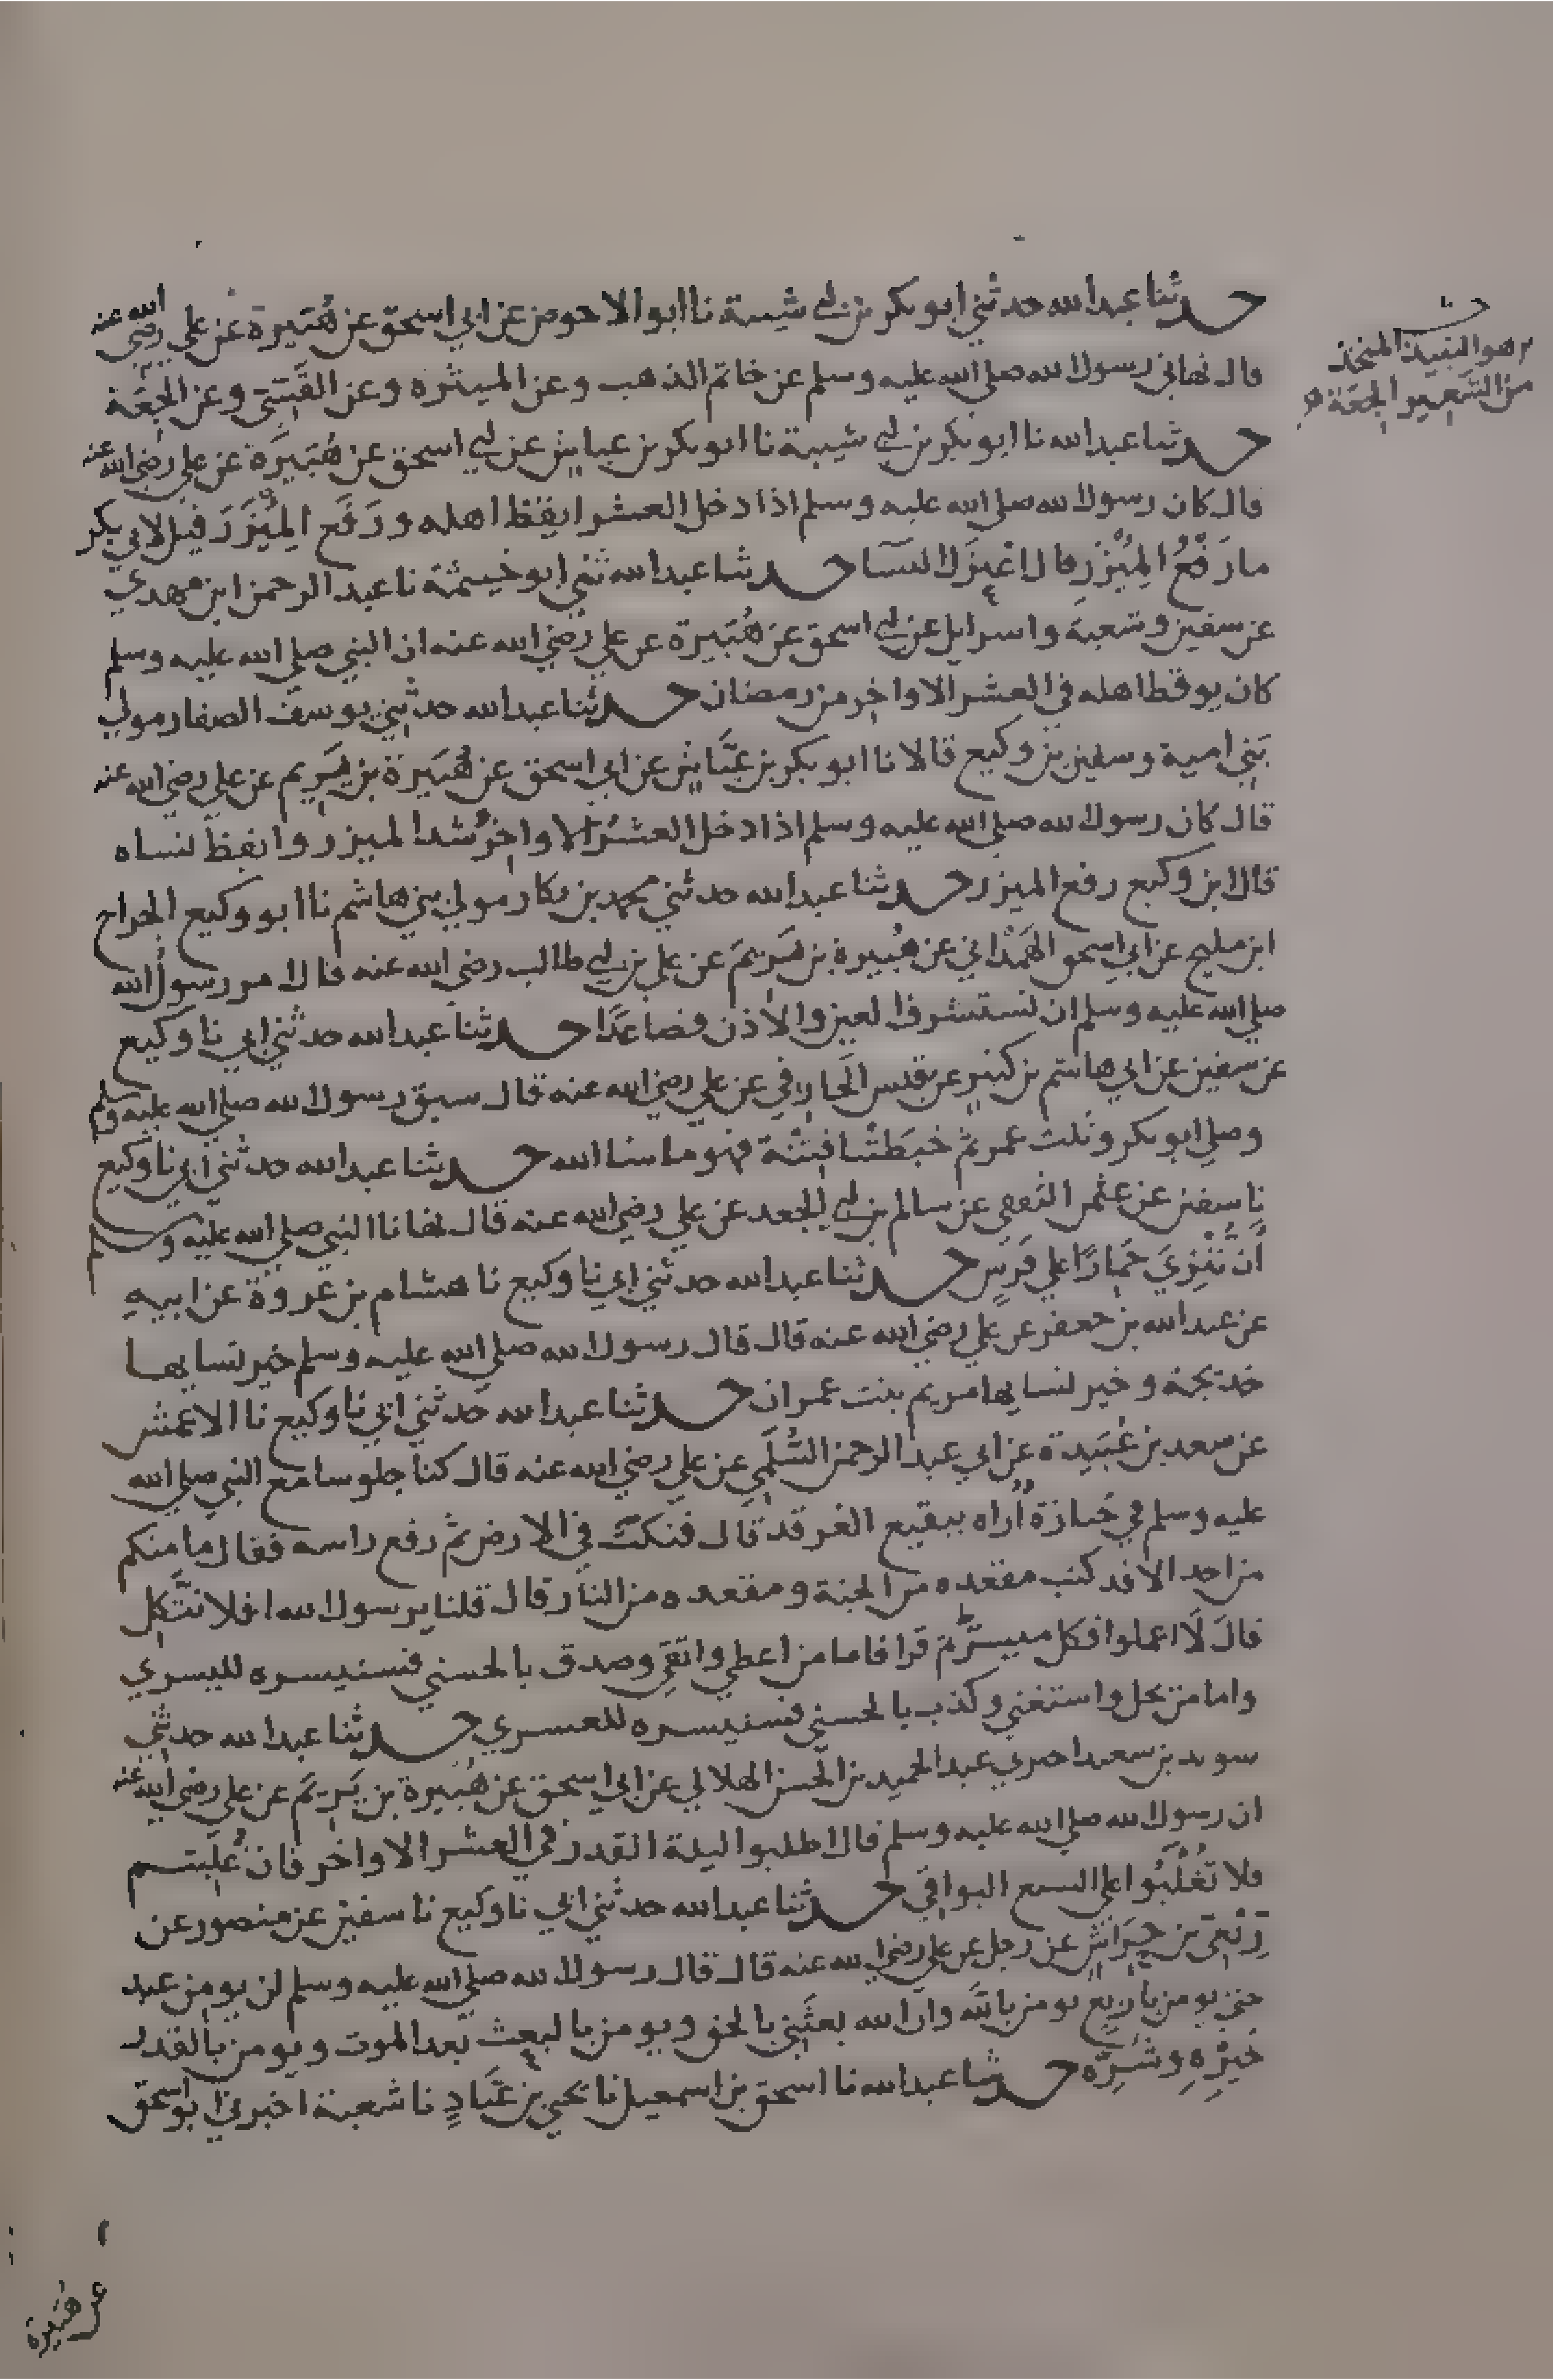 حدثنا عبدالله حدثني ابو بكر بن ابي شيبة نا ابو الاحوص عن ابي اسحق عن هُبَيرة عن علي رضي الله عنه
قال نهاني رسول الله صلى الله عليه وسلم عن خاتم الذهب وعن الميثره وعن القَسّيّ وعن الجِعَة
هو النبيذ المتخذ
من الشعير الجعة
حدثنا عبدالله نا ابو بكر بن ابي شيبة نا ابو بكر بن عياش عن ابي اسحق عن هُبَيرَة عن علي رضي الله عنه
قال كان رسول الله صلى الله عليه وسلم اذا دخل العشر ايقظ اهله ورَفَع المِئزَرَ قيل لابي بكر
ما رَفْعُ المِئْزَرِ قال اعْتِزَال النسآ حدثنا عبدالله ثني ابو خيثمة نا عبد الرحمن ابن مهدي
عن سفين وشعبة واسرايل عن ابي اسحق عن هُبَيرة عن علي رضي الله عنه ان النبي صلى الله عليه وسلم
كان يوقظ اهله في العشر الاواخر من رمضان حدثنا عبدالله حدثني يوسف الصفار مولي
بَني امية وسفين بن وكيع قالا نا ابو بكر بن عَيَّاش عن ابي اسحق عن هُبَيرة بن يَرِيم عن علي رضي الله عنه
قال كان رسول الله صلى الله عليه وسلم اذا دخل العشرُ الاواخرُ شد الميزر وايقظ نساه
قال ابن وكيع رفع الميزر حدثنا عبدالله حدثني محمد بن بكار مولي بني هاشم نا ابو وكيع الجراح
ابن مليح عن ابي اسحق الهَمْدَاني عن هُبيرة بن يَرِيمَ عن علي بن ابي طالب رضي الله عنه قال امر رسول الله
صلى الله عليه وسلم ان نستشرف العين والاذن فصاعدًا حدثنا عبدالله حدثني ابي نا وكيع
عن سفين عن ابي هاشم بن كثير عن قيس الخارفي عن علي رضي الله عنه قال سبق رسول الله صلى الله عليه وسلم
وصلي ابو بكر وثلث عمر ثم خبَطَتْنا فِتْنَة فهو ما شا الله حدثنا عبدالله حدثني ابي نا وكيع
نا سفين عن عثمن الثقفي عن سالم بن ابي الجعد عن علي رضي الله عنه قال نهانا النبي صلى الله عليه وسلم
أن نُنْزِيَ حِمَارًا علي فَرَسٍ حدثنا عبدالله حدثني ابي نا وكيع نا هشام بن عروة عن ابيهِ
عن عبدالله بن جعفر عن علي رضي الله عنه قال قال رسول الله صلى الله عليه وسلم خير نسايها
خديجة وخير نسايها مريم بنت عمران حدثنا عبدالله حدثني ابي نا وكيع نا الاعمش
عن سعد بن عُبَيدة عن ابي عبد الرحمن السُّلَمي عن علي رضي الله عنه قال كنا جلوسا مع النبي صلى الله
عليه وسلم في جَنازة أُراه ببقيع الغرقد قال فنكت في الارض ثم رفع راسه فقال ما منكم
من احد الا قد كتب مقعده من الجنة ومقعده من النار قال قلنا يرسول الله افلا نتَّكِل
قالَ لَا اعملوا فكل ميسَّر ثم قرا فاما من اعطي واتقي وصدق بالحسني فسنيسره لليسري
واما من بخل واستغني وكذب بالحسني فسنيسره للعسري حدثنا عبدالله حدثني
سويد بن سعيد اخبرني عبد الحميد بن الحسن الهلالي عن ابي اسحق عن هُبَيرة بن يَرِيمَ عن علي رضي الله عنه
ان رسول الله صلى الله عليه وسلم قال اطلبوا ليلة القدر في العشر الاواخر فان غُلِبتم
فلا تُغْلَبُوا علي السبع البواقي حدثنا عبدالله حدثني ابي نا وكيع نا سفين عن منصور عن
رِبْعي بن حِرَاشٍ عن رجل عن علي رضي الله عنه قال قال رسول الله صلى الله عليه وسلم لن يومن عبد
حتي يومن باربع يومن بالله وان الله بعثني بالحق ويومن بالبعث بعد الموت ويومن بالقدر
خَيْرِهِ وشَرِّه حدثنا عبدالله نا اسحق بن اسمعيل نا يحيي بن عَبَّادٍ نا شعبة اخبرني ابو اسحق
عن هبيرة